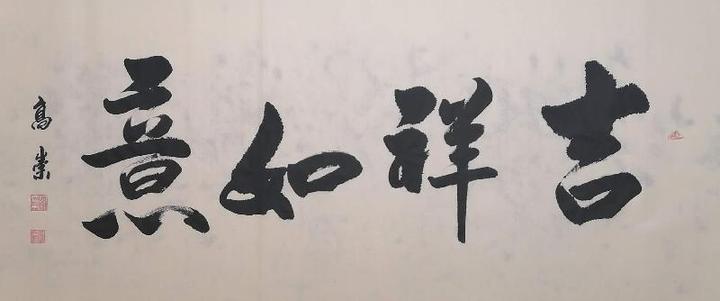 吉祥如意
高業